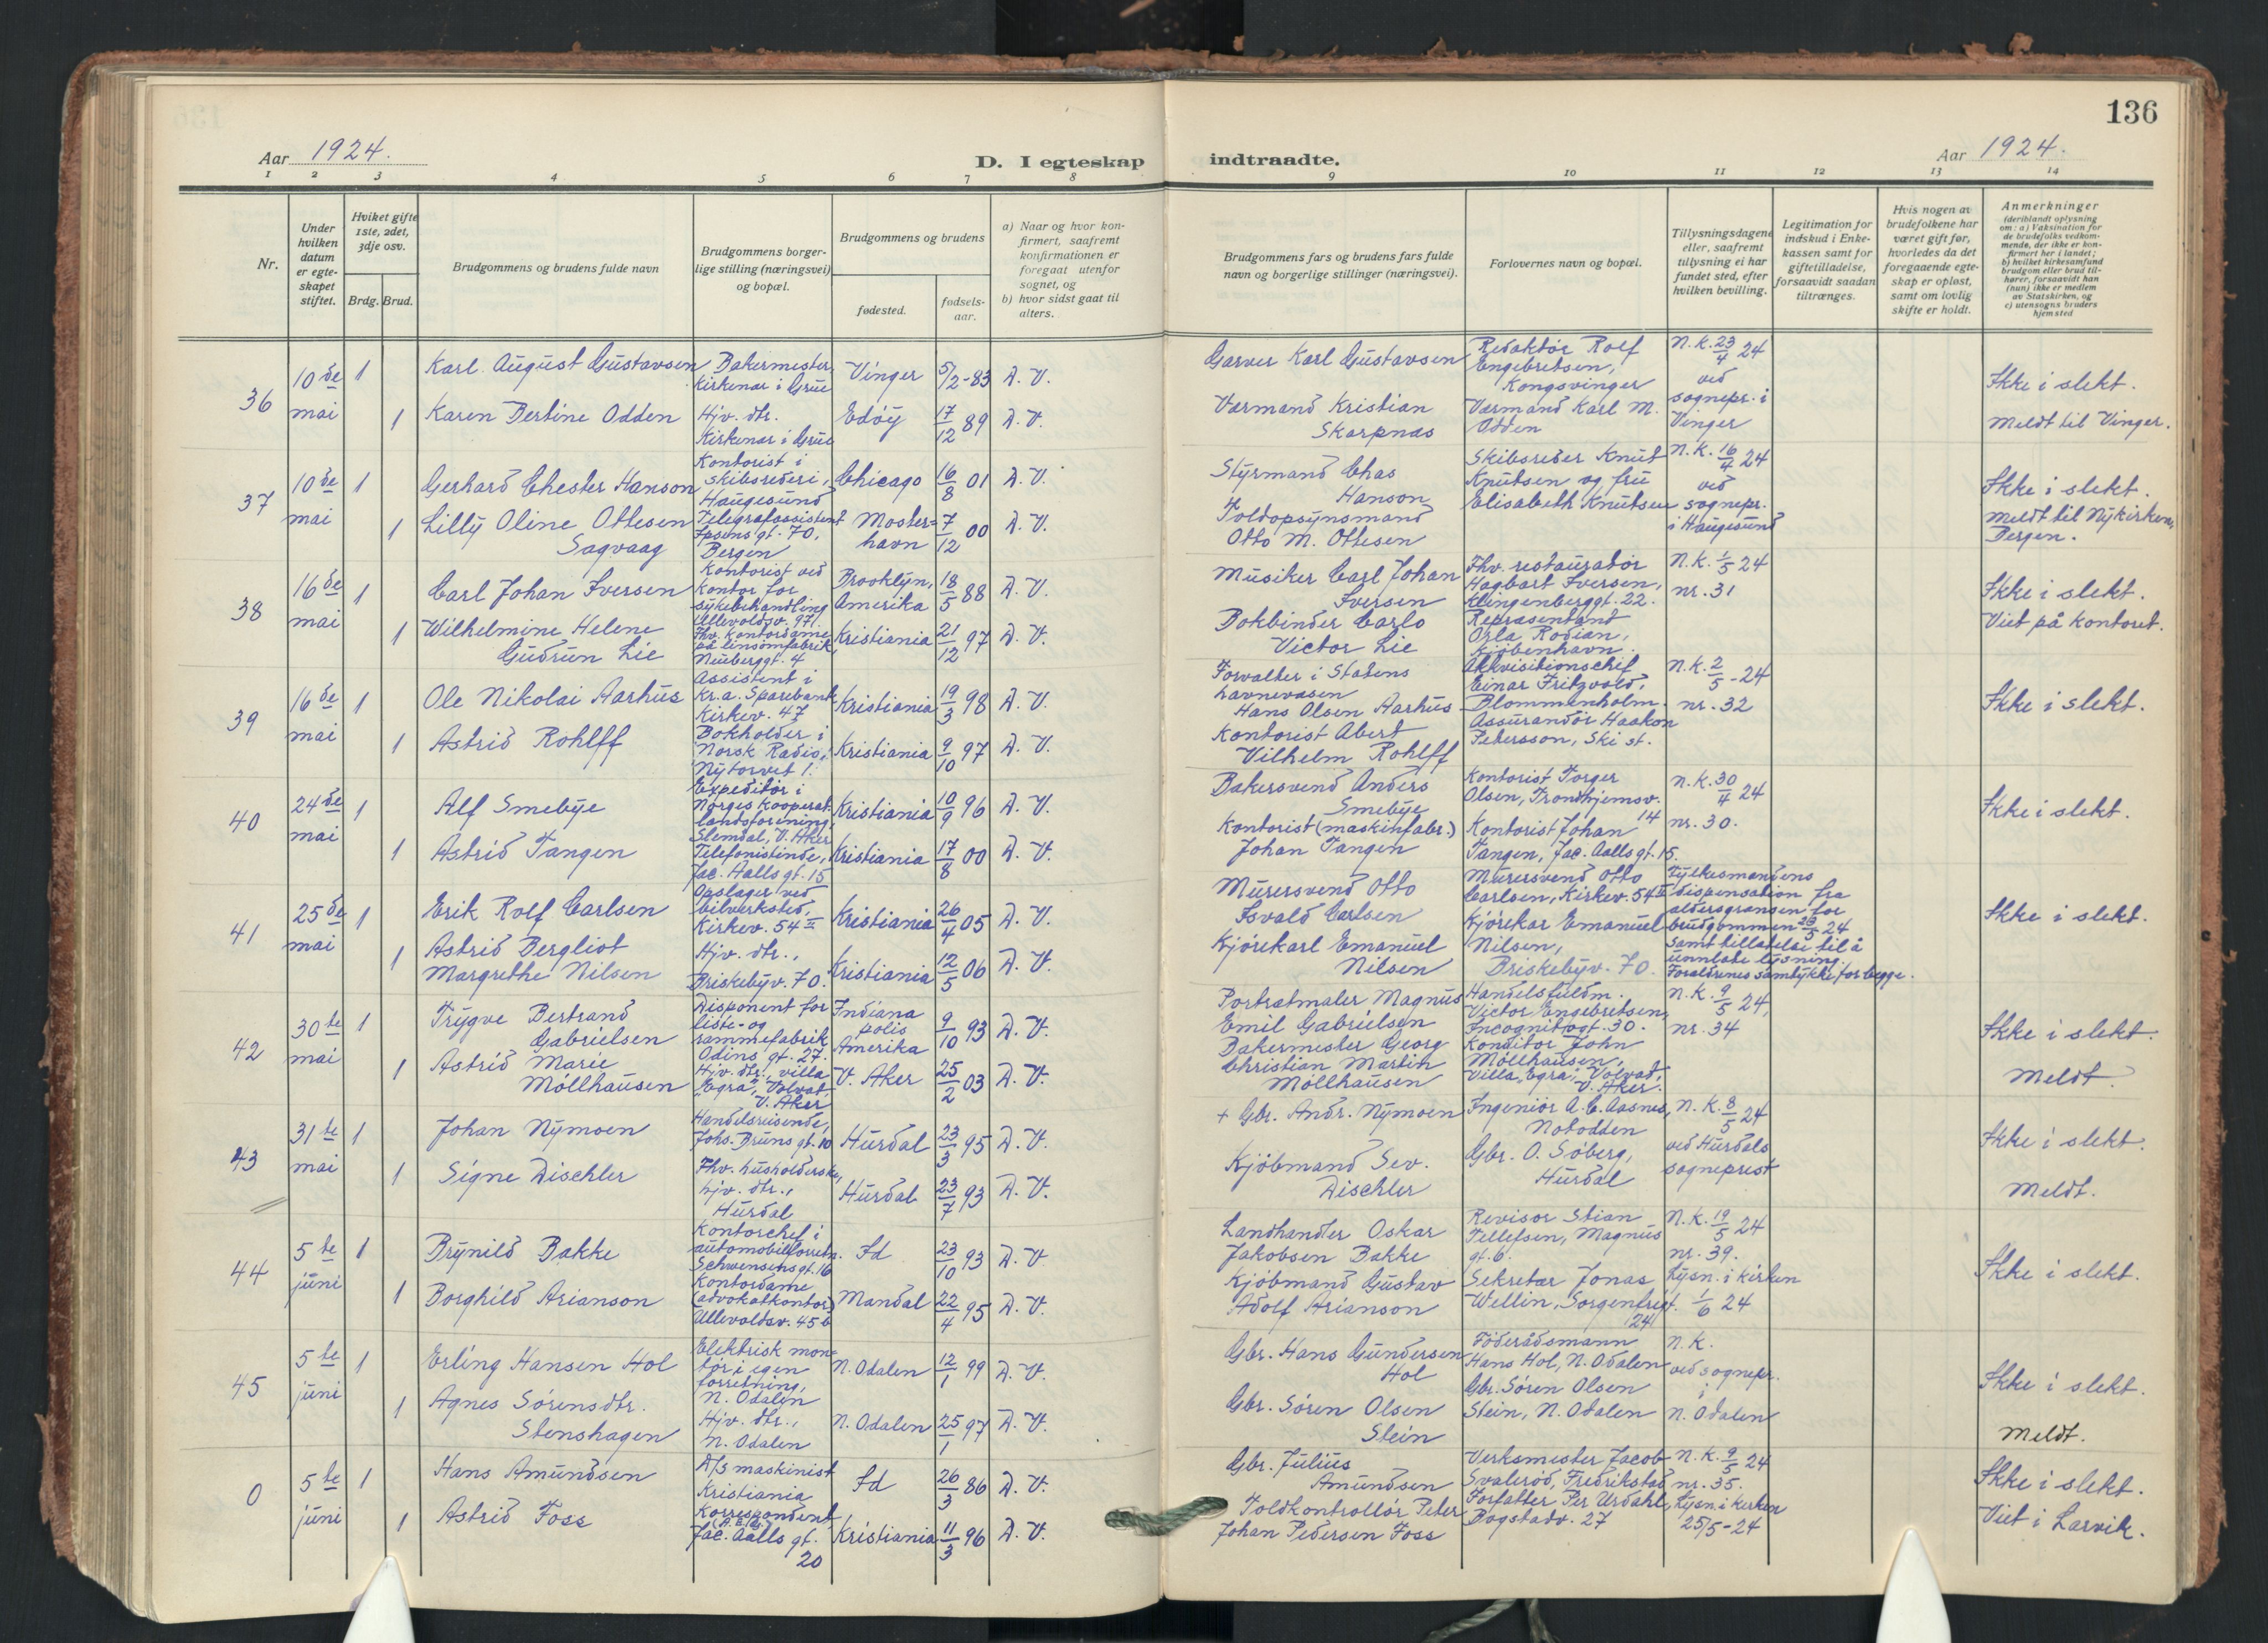 136
Aar 1924.
D. I egteskap indtraadte.
Aar 1924.
1 2 3 4 5 6 7 8 9 10 11 12 13 14
Nr.
Under hvilken datum er egte-skapet stiftet.
Hvilket gifte 1ste, 2det, 3dje osv.
Brdg. Brud.
Brudgommens og brudens fulde navn
Brudgommens borger-lige stilling (næringsvei) og bopæl.
Brudgommens og brudens
fødested.
fødsels-aar.
a) Naar og hvor kon-firmert, saafremt konfirmationen er foregaat utenfor sognet, og
b) hvor sidst gaat til alters.
Brudgommens fars og brudens fars fulde navn og borgerlige stillinger (næringsvei).
Forlovernes navn og bopæl.
Tillysningsdagene eller, saafremt tillysning ei har fundet sted, efter hvilken bevilling.
Legitimation for indskud i Enke-kassen samt for giftetilladelse, forsaavidt saadan tiltrænges.
Hvis nogen av brudefolkene har været gift før, hvorledes da det foregaaende egte-skap er opløst, samt om lovlig skifte er holdt.
Anmerkninger (deriblandt oplysning om: a) Vaksination for de brudefolks vedkom-mende, der ikke er kon-firmert her i landet; b) hvilket kirkesamfund brudgom eller brud til-hører, forsaavidt han (hun) ikke er medlem av Statskirken, og c) utensogns bruders hjemsted
36 10de mai
1 Karl August Gustavsen Bakermester, Kirkenær i Grue Vinger 5/2-83 D. V. Garver Karl Gustavsen Redaktør Rolf Engebretsen, Kongsvinger N.K. 23/4 24 ved sognepr. i Vinger Ikke i slekt.
1 Karen Bertine Odden Hjv. dtr. Kirkenær i Grue Edøy 17/12 89 D. V. Værmand Kristian Skarpnæs Værmand Karl M. Odden Meldt til Vinger.
37 10de mai
1 Gerhard Chester Hanson Kontorist i skibsrederi, Haugesund Chicago 16/8 01 D. V. Styrmand Chas Hanson Skibsreder Knut Knutsen og fru Elisabeth Knutsen N.K. 16/4 24 ved sognepr. i Haugesund Ikke i slekt.
1 Lilly Oline Ottesen Sagvaag Telegrafassistent Jøsens gt. 70, Bergen Moster=havn 7/12 00 D. V. Toldopsynsmand Otto M. Ottesen Meldt til Nykirken, Bergen.
38 16de mai
1 Carl Johan Iversen Kontorist ved kontor for sykebehandling Ullevoldsv. 97I. Brooklyn, Amerika 18/5 88 D. V. Musiker Carl Johan Iversen Fhv. restauratør Hagbart Iversen, Klingenberggt. 22. N.K. 1/5 24 nr. 31 Ikke i slekt.
1 Wilhelmine Helene Gudrun Lie Fhv. kontordame på linsømfabrik, Neuberggt. 4 Kristiania 21/12 97 D. V. Bokbinder Carlo Victor Lie Repræsentant Orla Rodian, Kjøbenhavn. Viet på kontoret.
39 16de mai
1 Ole Nikolai Aarhus Assistent i Kr.a. Sparebank Kirkev. 47 Kristiania 19/3 98 D. V. Forvalter i Statens havnevæsen Hans Olsen Aarhus Akkvisitionschef Einar Fritzvold, Blommenholm. N.K. 2/5-24 nr. 32 Ikke i slekt.
1 Astrid Rohlff Bokholder i Norsk Radio, Nytorvet 1. Kristiania 9/10 97 D. V. Kontorist Abert Vilhelm Rohlff Assurandør Haakon Petersson, Ski st.
40 24de mai
1 Alf Smebye Expeditør i Norges Kooperat. landsforening, Slemdal, V. Aker Kristiania 10/9 96 D. V. Bakersvend Anders Smebye Kontorist Torger Olsen, Trondhjemsv. 14 N.K. 30/4 24 nr. 30. Ikke i slekt.
1 Astrid Tangen Telefonistinde, Jac. Aalls gt. 15 Kristiania 17/8 00 D. V. Kontorist (maskinfabr.) Johan Tangen Kontorist Johan Tangen, Jac. Aalls gt. 15.
41 25de mai
1 Erik Rolf Carlsen Opslager ved bilverksted, Kirkev. 54 II Kristiania 26/4 05 D. V. Murersvend Otto Isvald Carlsen Murersvend Otto Carlsen, Kirkev. 54 II Fylkesmandens dispensation fra aldersgrænsen for brudgommen 23/5 24 samt tillatelse til å unnlate lysning. Forældrenes samtykke for begge. Ikke i slekt.
1 Astrid Bergliot Margrethe Nilsen Hjv. dtr., Briskebyv. 70. Kristiania 12/5 06 D. V. Kjørekarl Emanuel Nilsen Kjørekar Emanuel Nilsen, Briskebyv. 70.
42 30te mai
1 Trygve Bertrand Gabrielsen Disponent for liste- og rammefabrik Odins gt. 27. Indianapolis Amerika 9/10 93 D. V. Portrætmaler Magnus Emil Gabrielsen Handelsfuldm. Victor Engebretsen, Incognitogt. 30. N.K. 9/5 24, nr. 34 Ikke i slekt.
1 Astrid Marie Møllhausen Hjv. dtr., villa "Egra", Volvat, V. Aker V. Aker 25/2 03 D. V. Bakermester Georg Christian Martin Møllhausen Konditor John Møllhausen, Villa "Egra", Volvat, V. Aker. Meldt.
43 31te mai
1 Johan Nymoen Handelsreisende, Johs. Bruns gt. 10 Hurdal 23/3 95 D. V. + Gbr. Andr. Nymoen Ingeniør A. C. Aasnes, Notodden N.K. 8/5 24 ved Hurdals sogneprest Ikke i slekt.
1 Signe Dischler Fhv. husholderske, hjv. dtr., Hurdal Hurdal 23/7 93 D. V. Kjøbmand Sev. Dischler Gbr. O. Søberg, Hurdal Meldt.
44 5te juni
1 Brynild Bakke Kontorchef i automobilforretn. Schwensensgt. 16 Id 23/10 93 D. V. Landhandler Oskar Jakobsen Bakke Revisor Stian Tellefsen, Magnus gt. 6. N.K. 19/5 24 nr. 39. Lysn. i kirken 1/6 24 Ikke i slekt.
1 Borghild Arianson Kontordame (advokatkontor) Ullevoldsv. 45 b Mandal 22/4 95 D. V. Kjøbmand Gustav Adolf Arianson Sekretær Jonas Wellin, Sorgenfrigt. 24
45 5te juni
1 Erling Hansen Hol Elektrisk montør i egen forretning, N. Odalen N. Odalen 12/1 99 D. V. Gbr. Hans Gundersen Hol Føderådsmann Hans Hol, N. Odalen N.K. ved sognepr. i N. Odalen Ikke i slekt.
1 Agnes Sørensdtr. Stenshagen Hjv. dtr., N. Odalen N. Odalen 25/1 97 D. V. Gbr. Søren Olsen Stein Gbr. Søren Olsen Stein, N. Odalen Meldt.
0 5te juni
1 Hans Amundsen D/S maskinist Kristiania Id 26/3 86 D. V. Gbr. Julius Amundsen Verksmester Jacob Svalerød, Fredrikstad N.K. 9/5 24 nr. 35. Lysn. i kirken 25/5-24 Ikke i slekt.
1 Astrid Foss Korrespondent Jac. Aalls gt. 20 Kristiania 11/3 96 D. V. Toldkontrollør Peter Johan Pedersen Foss Forfatter Per Urdahl, Bogstadv. 27 Viet i Larvik.